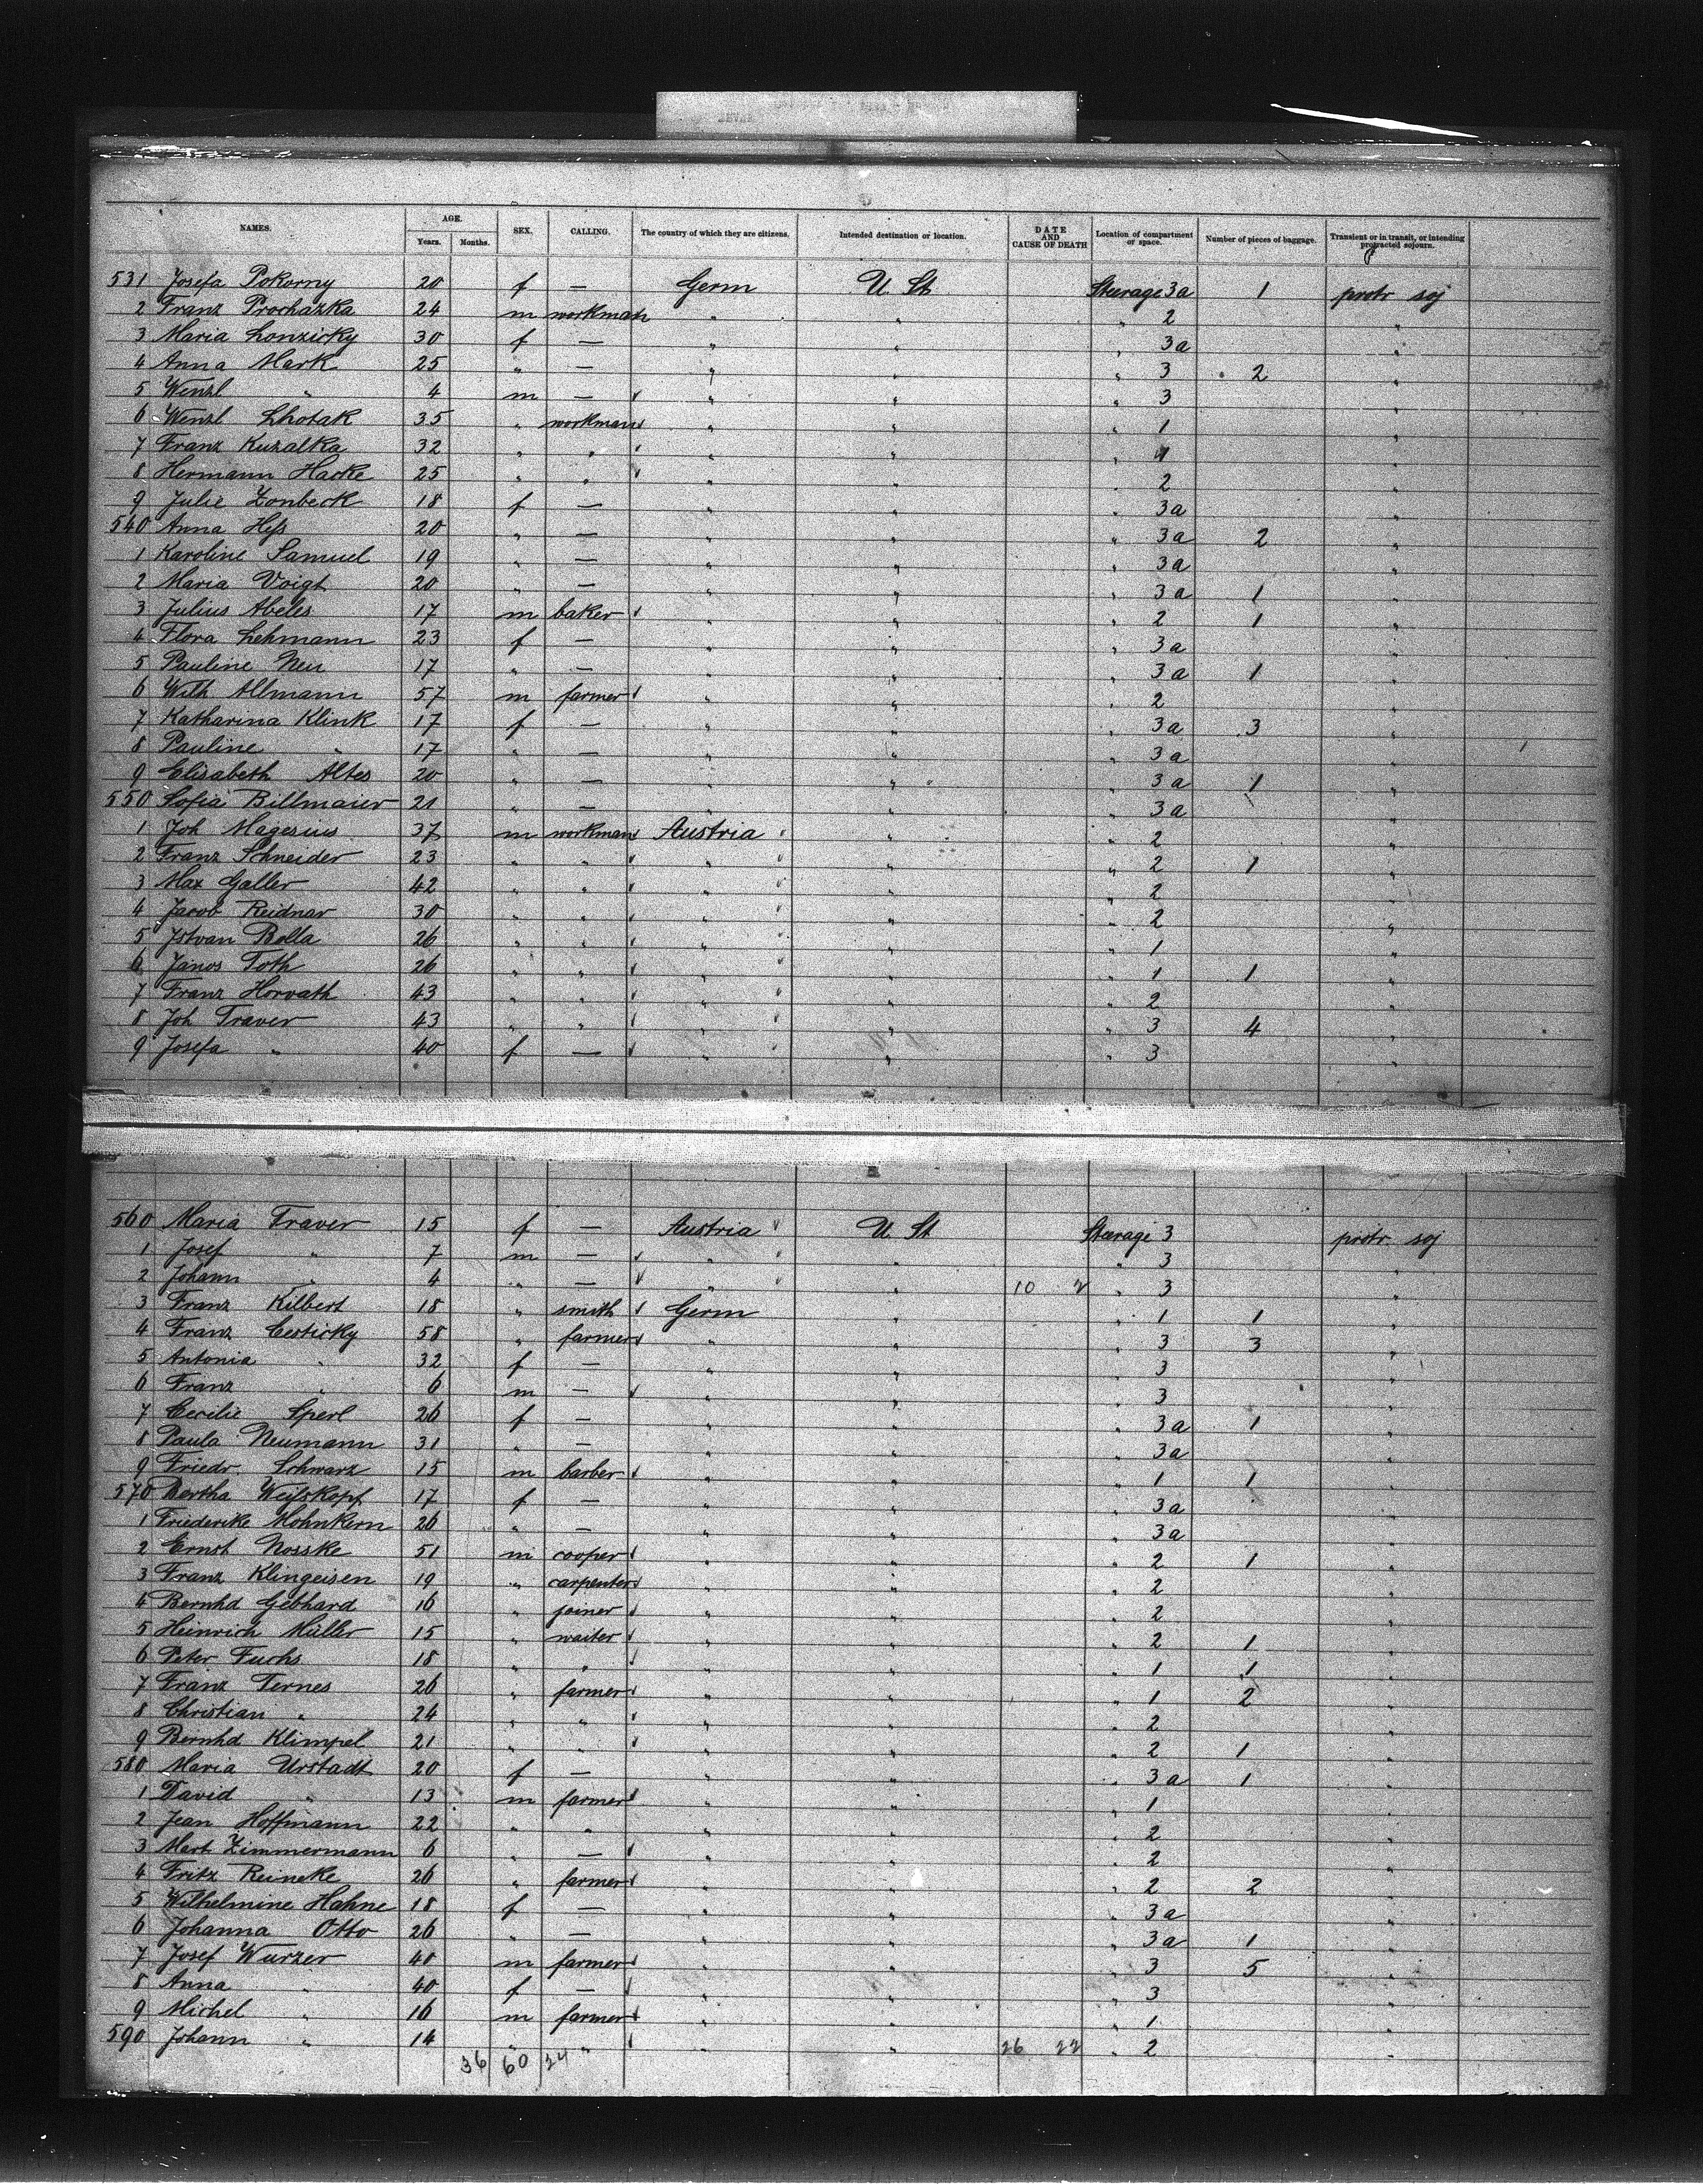 NAMES. AGE. Years. Months. SEX. CALLING. The country of which they are citizens. Intended destination or location. DATE AND CAUSE OF DEATH Location of compartment or space. Number of pieces of baggage. Transient or in transit, or intending protracted sojourn.
531 Josefa Pokorny 20 f — Germ U. St Steerage 3a 1 protr soj
2 Franz Prochazka 24 m workman " " " 2 "
3 Maria Lonzicky 30 f — " " " 3a "
4 Anna Mark 25 " — " " " 3 2 "
5 Wenzl " 4 m — " " " 3 "
6 Wenzl Lhotak 35 " workman " " " 1 "
7 Franz Kuzalka 32 " " " " " "
8 Hermann Hacke 25 " " " " " 2 "
9 Julie Zonbeck 18 f — " " " 3a "
540 Anna Heß 20 " — " " " 3a 2 "
1 Karoline Samuel 19 " — " " " 3a "
2 Maria Voigt 20 " — " " " 3a 1 "
3 Julius Abeles 17 m baker " " " 2 1 "
4 Flora Lehmann 23 f — " " " 3a "
5 Pauline Neu 17 " — " " " 3a 1 "
6 Wilh Allmann 57 m farmer " " " 2 "
7 Katharina Klink 17 f — " " " 3a 3 "
8 Pauline " 17 " — " " " 3a "
9 Elisabeth Altes 20 " — " " " 3a 1 "
550 Sofia Billmaier 21 " — " " " 3a "
1 Joh Magesius 37 m workman Austria " " 2 "
2 Franz Schneider 23 " " " " " 2 1 "
3 Max Galler 42 " " " " " 2 "
4 Jacob Reidnar 30 " " " " " 2 "
5 Istvan Bolla 26 " " " " " 1 "
6 Janos Toth 26 " " " " " 1 1 "
7 Franz Horvath 43 " " " " " 2 "
8 Joh Traver 43 " " " " " 3 4 "
9 Josefa " 40 f — " " " 3 "
560 Maria Traver 15 f — Austria U. St Steerage 3 protr. soj
1 Josef " 7 m — " " " 3 "
2 Johann " 4 " — " " 10 2 " 3 "
3 Franz Kilbert 18 " smith Germ " " 1 1 "
4 Franz Cesticky 58 " farmer " " " 3 3 "
5 Antonia " 32 f — " " " 3 "
6 Franz " 6 m — " " " 3 "
7 Cecilie Sperl 26 f — " " " 3a 1 "
8 Paula Neumann 31 " — " " " 3a "
9 Friedr. Schwarz 15 m barber " " " 1 1 "
570 Bertha Weißkopf 17 f — " " " 3a "
1 Friederike Mohnkern 26 " — " " " 3a "
2 Ernst Nosske 51 m cooper " " " 2 1 "
3 Franz Klingeisen 19 " carpenter " " " 2 "
4 Bernhd Gebhard 16 " joiner " " " 2 "
5 Heinrich Müller 15 " waiter " " " 2 1 "
6 Peter Fuchs 18 " " " " " 1 1 "
7 Franz Ternes 26 " farmer " " " 1 2 "
8 Christian " 24 " " " " " 2 "
9 Bernhd Klimpel 21 " " " " " 2 1 "
580 Maria Urstadt 20 f — " " " 3a 1 "
1 David " 13 m farmer " " " 1 "
2 Jean Hoffmann 22 " " " " " 2 "
3 Mart Zimmermann 6 " — " " " 2 "
4 Fritz Reineke 26 " farmer " " " 2 2 "
5 Wilhelmine Hahne 18 f — " " " 3a "
6 Johanna Otto 26 " — " " " 3a 1 "
7 Josef Wurzer 40 m farmer " " " 3 5 "
8 Anna " 40 f — " " " 3 "
9 Michel " 16 m farmer " " " 1 "
590 Johann " 14 " " " " 26 22 " 2 "
36 60 24